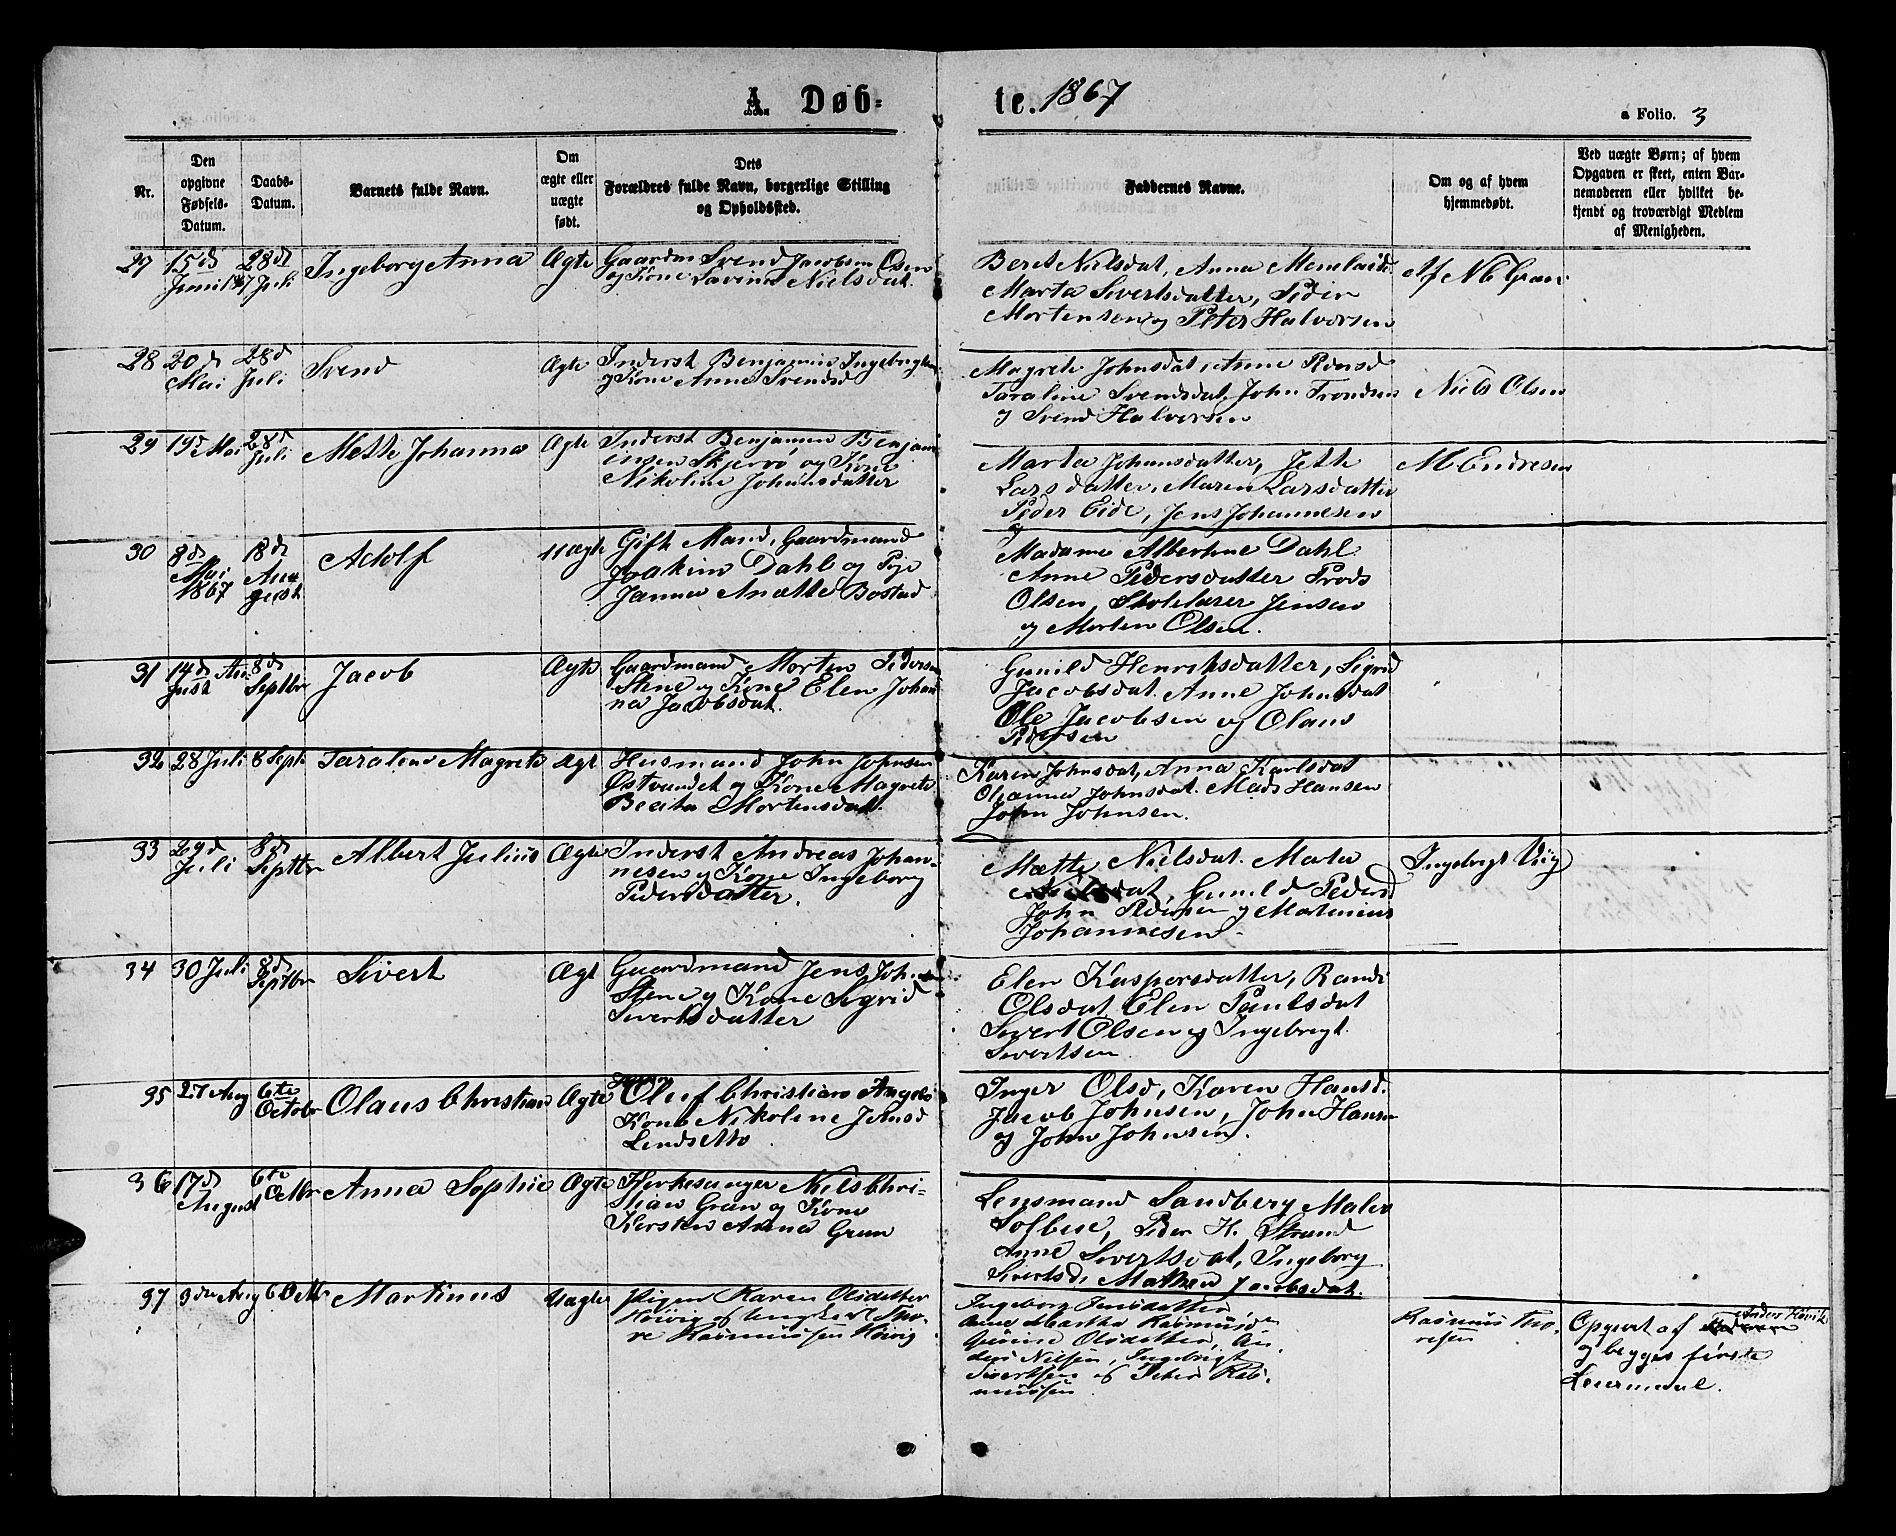 A. Døb=
te. 1867
a Folio. 3
Nr.
Den opgivne Fødsels-Datum.
Daabs-Datum.
Barnets fulde Navn.
Om ægte eller uægte født.
Dets Forældres fulde Navn, borgerlige Stilling og Opholdssted.
Faddernes Navne.
Om og af hvem hjemmedøbt.
Ved uægte Børn; af hvem Opgaven er skeet, enten Barnemoderen eller hvilket bekjendt og troværdigt Medlem af Menigheden.
27 15d Juni 28de Juli Ingeborg Anna Ægte
Gaardm Svend Jacobsen Osen
og Kone Lavina Nielsdat.
Beret Nielsdat, Anna
Marta Sivertsdatter, Peder
Mortensen og Peter Halvorsen
Af NC Gran
28 20d Mai 28d Juli Svend Ægte
Inderst Benjamin Ingebrigtsen
og Kone Anne Svendsd
Magrete Johnsdat, Anne
Taraline Svendsdat, John Trondsen
og Svend Halvorsen
Niels Olsen
29 19d Mai 28d Juli Mette Johanna Ægte
Inderst Benjamin Benjam
insen Skjervø og Kone
Nikoline Johansdatter
Marta Johansdatter, Jette
Larsdatter, Maren Larsdatter
Peder Eide, Jens Johannesen
M Endresen
30 8d Mai 1867 18d August Adolf Uægte
Gift Mand, Gaardmand
Joakim Dahl og Pige
Janna Anætte Bostad
Madame Albertine Dahl
Anne Pedersdatter
Olsen, Skolelærer Jensen
og Morten Olsen.
31 14d August 8d Septbr Jacob Ægte
Gaardmand Morten Pedersen
Stene og Kone Elen Johan
na Jacobsdat.
Gunild Henriksdatter, Sigrid
Jacobsdat. Anne Johnsdat
Ole Jacobsen og Olaus
Pedersen
32 28 Juli 8 Sept Taraline Magrete Ægt
Husmand John Johnsen
Østvandet og Kone Magrete
Beata Mortensdat.
Karen Johnsdat, Anna Karlsdat
Olianna Johnsdat. Mads Hansen
John Johnsen.
33 29d Juli 8d Septbr Albert Julius Ægte
Inderst Andreas Johan-
nesen og Kone Ingeborg
Pedersdatter.
Mætte Nielsdat. Marta
Gunild Pedersd
John Pedersen og Martinius
Johannesen.
Ingebrigt Viig
34 30 Juli 8d Septbr Sivert Ægt
Gaardmand Jens Joh
Stene og Kone Sigrid
Sivertsdatter
Elen Kaspersdatter, Randi
Olsdat, Elen Paulsdat
Sivert Olsen og Ingebrigt
Sivertsen.
35 27 Aug 6te Octobr Olaus Christian Ægte
Oluf Christian
Kone Nikoline Jensd
Lindsetto
Inger Olsd, Karen Hansd.
Jacob Johnsen, John Hansen
og John Johnsen.
36 17d August 6te Octbr Anna Sophie Ægte
Kirkesanger Niels Chri-
stian Gran og Kone
Kersten Anna Gran
Lensmand Sandberg Maler
Solbue, Peder H. Strand
Anne Sivertsdat, Ingeborg
Sivertsd, Mathea Jacobsdat.
37 3die Aug 6 Octbr Martinus Uægte
Pigen Karen Olsdatter
Høivig & Ungkarl Tho-
re Rasmussen Høivig
Ingeborg Jensdatter,
Ane Martha Rasmusd
Gurine Olsdatter, An-
ders Nilsen, Ingebrigt
Sivertsen & Peter Ras-
mussen
Rasmus Tho-
resen
Opgivet af Anders Høivik
og begges første
Leiermaal.